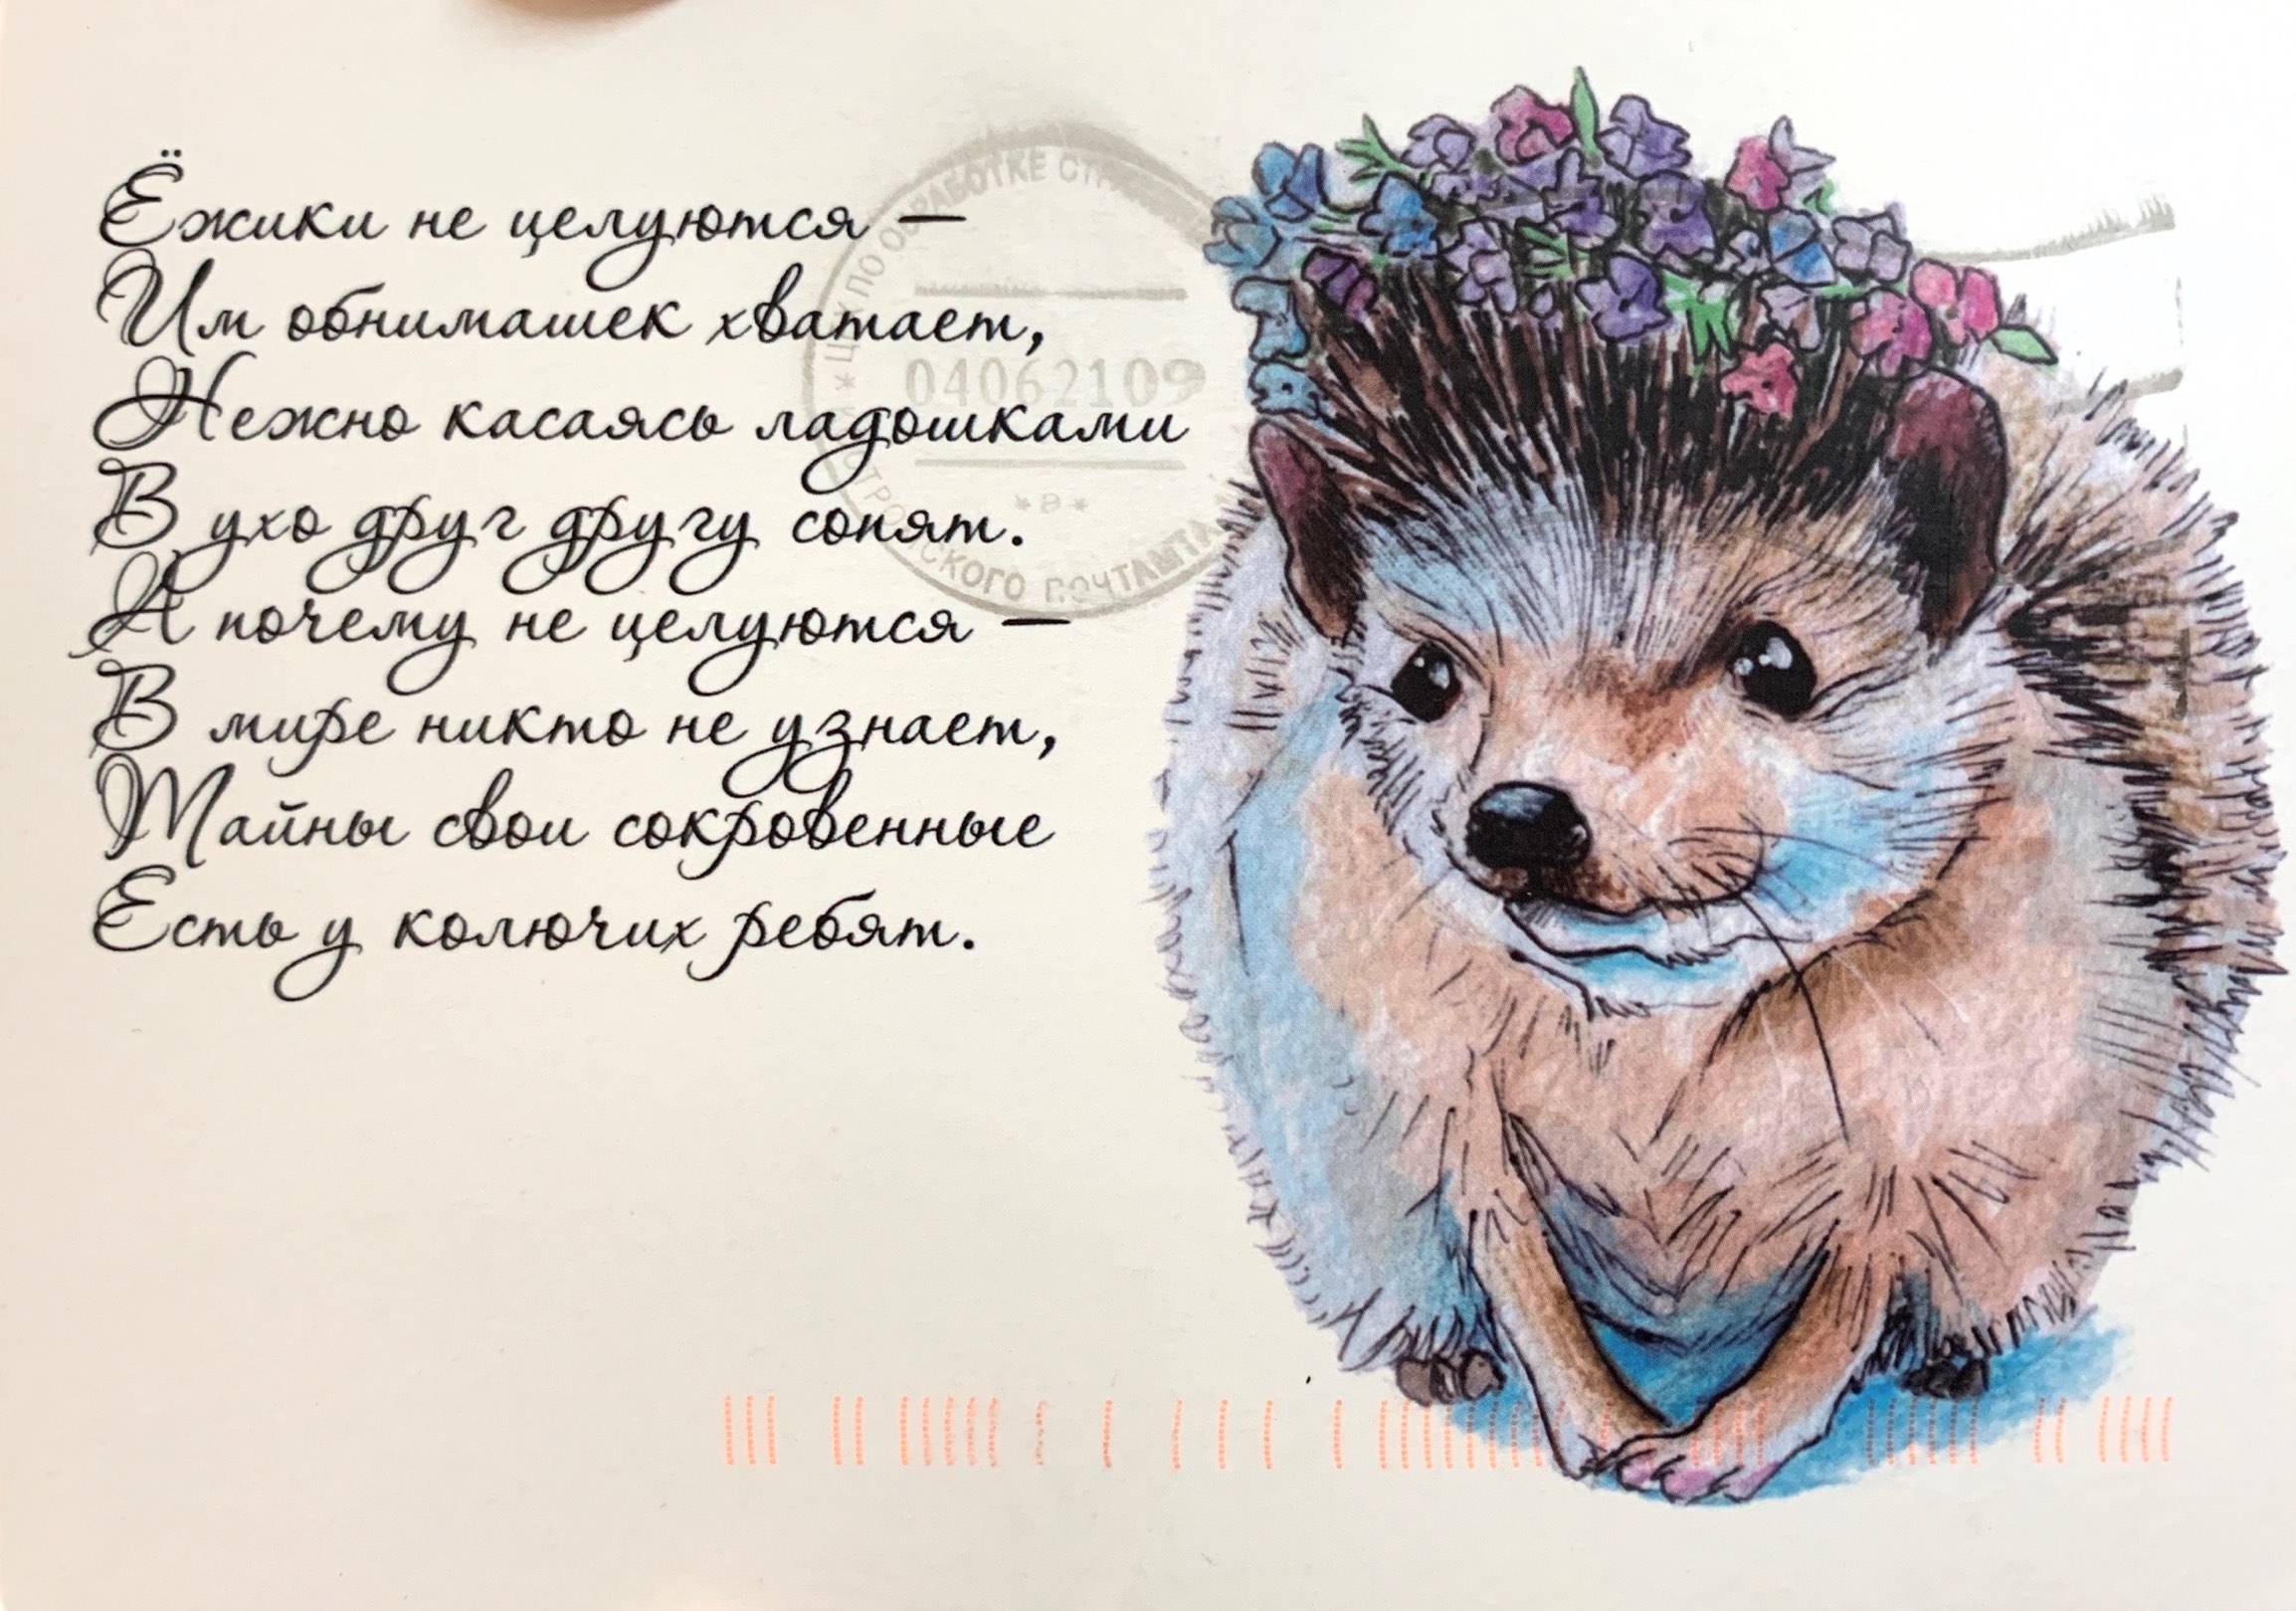 Ёжики не целуются —
Им обнимашек хватает,
Нежно касаясь ладошками
В ухо друг другу сопят.
А почему не целуются —
В мире никто не узнает,
Тайны свои сокровенные
Есть у колючих ребят.
ЦЕХ ПО ОБРАБОТКЕ
04062109
*в*
ПОЧТАМТА